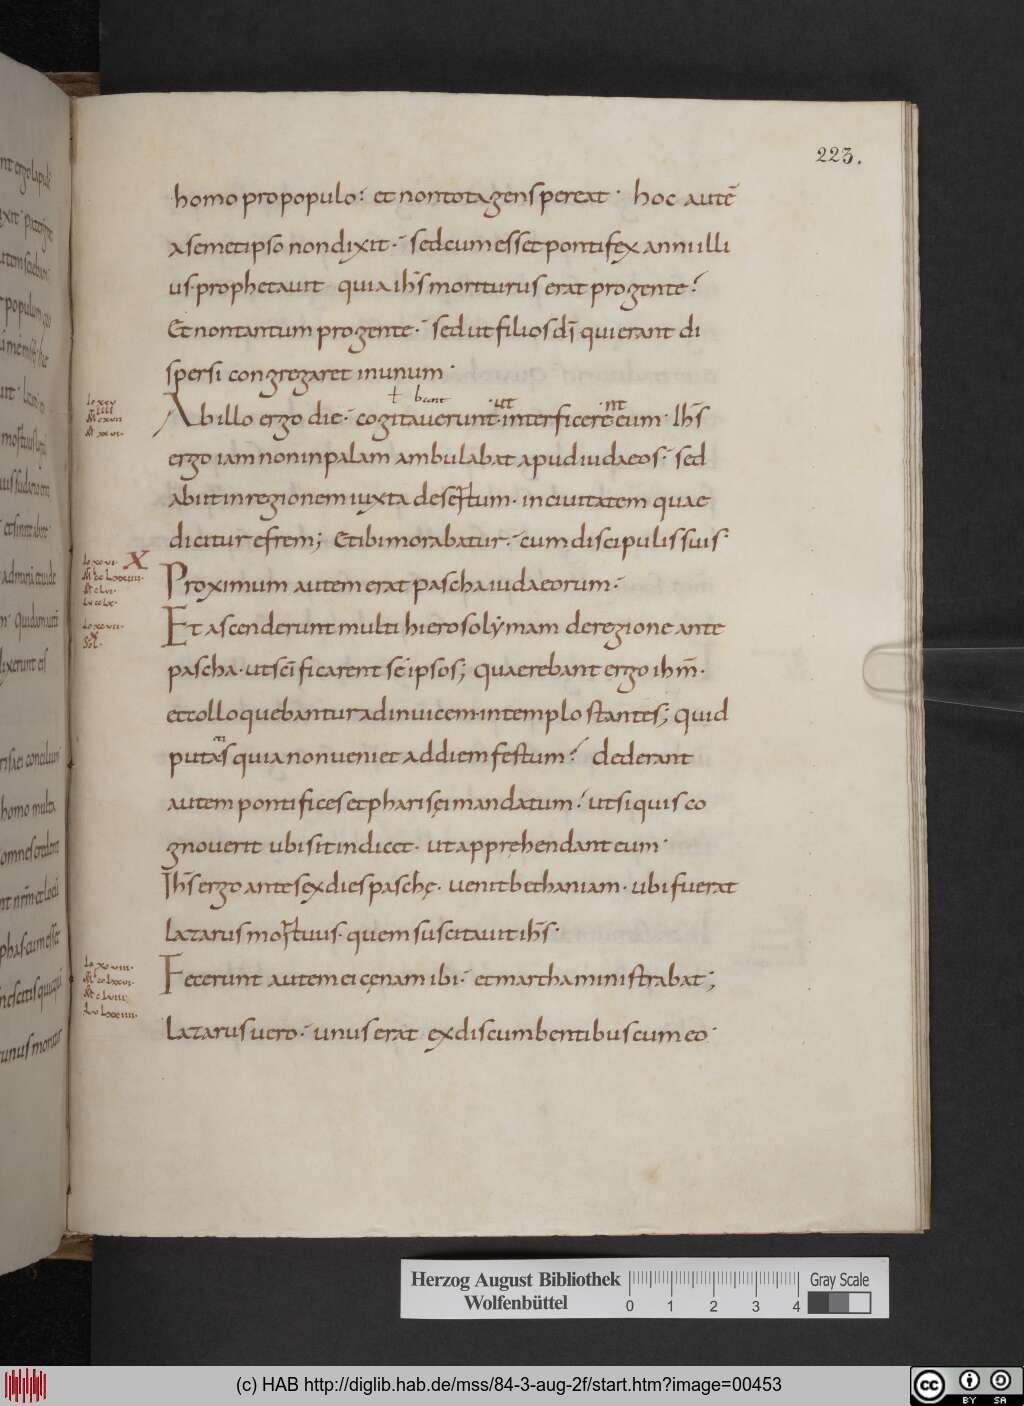 223.
homo pro populo: et non tota gens pereat · hoc autē
a semetipso non dixit · sed cum esset pontifex anni illi
us · prophetauit quia ihs̄ moriturus erat pro gente ·
Et non tantum pro gente · sed ut filios dī qui erant di
spersi congregaret in unum ·
ɫ bant ·ut nt
Ab illo ergo die · cogitauerunt · interficere eum · Ihs̄
ergo iam non in palam ambulabat apud iudaeos · sed
abiit in regionem iuxta desertum · in ciuitatem quae
dicitur efrem; Et ibi morabatur · cum discipulis suis ·
X
Proximum autem erat pascha iudaeorum ·
Et ascenderunt multi hierosolẏmam de regione ante
pascha · ut scīficarent se ipsos; quaerebant ergo ihm̄ ·
et colloquebantur ad inuicem · in templo stantes; quid
putas quia non ueniet ad diem festum? dederant
autem pontifices et pharisęi mandatum · ut si quis co
gnouerit ubi sit indicet · ut apprehendant eum ·
Ihs̄ ergo ante sex dies paschę · uenit bethaniam · ubi fuerat
lazarus mortuus · quem suscitauit ihs̄ ·
Fecerunt autem ei cęnam ibi · et martha ministrabat;
lazarus uero · unus erat ex discumbentibus cum eo ·
Herzog August Bibliothek
Wolfenbüttel
0 1 2 3 4
Gray Scale
(c) HAB http://diglib.hab.de/mss/84-3-aug-2f/start.htm?image=00453
cc BY SA